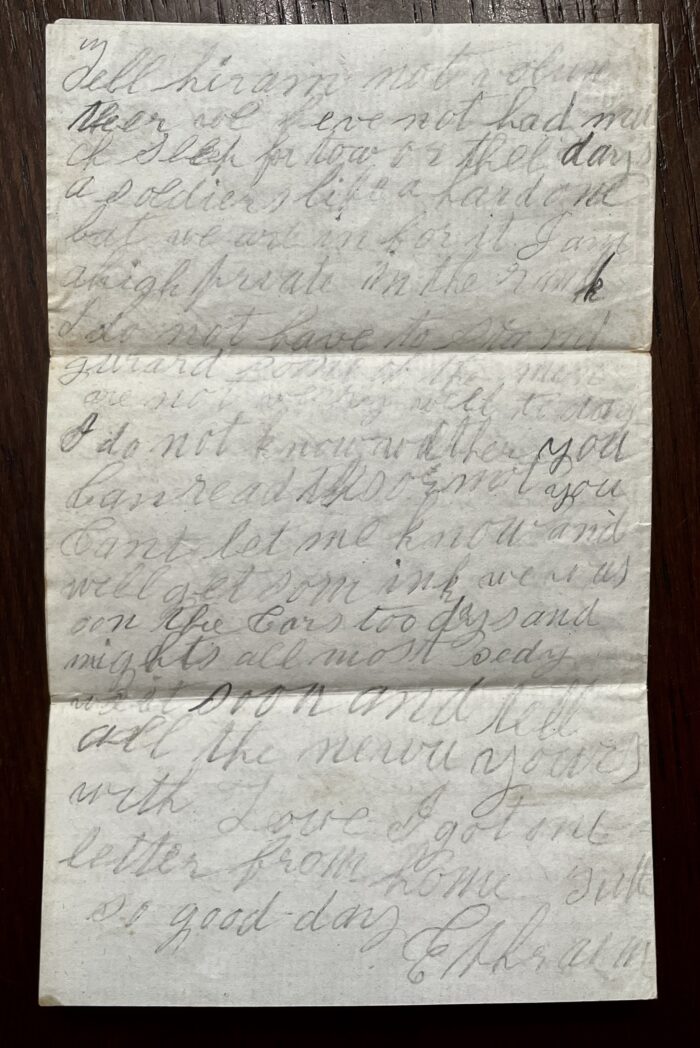 Tell hiram not volun
teer we heve not had mu
ch sleep for tow or thee days
a soldiers life a hard one
but we are in for it I am
a high private in the rank
I do not have to stand
guard some of the men
are not very well to day
I do not know wether you
Can read this or not you
Cant let me know and
will get som ink we
oon the Cars too days and
nights all most sedy
soon and tell
all the newu yours
with Love I got one
letter from home
so good day
Ethraim